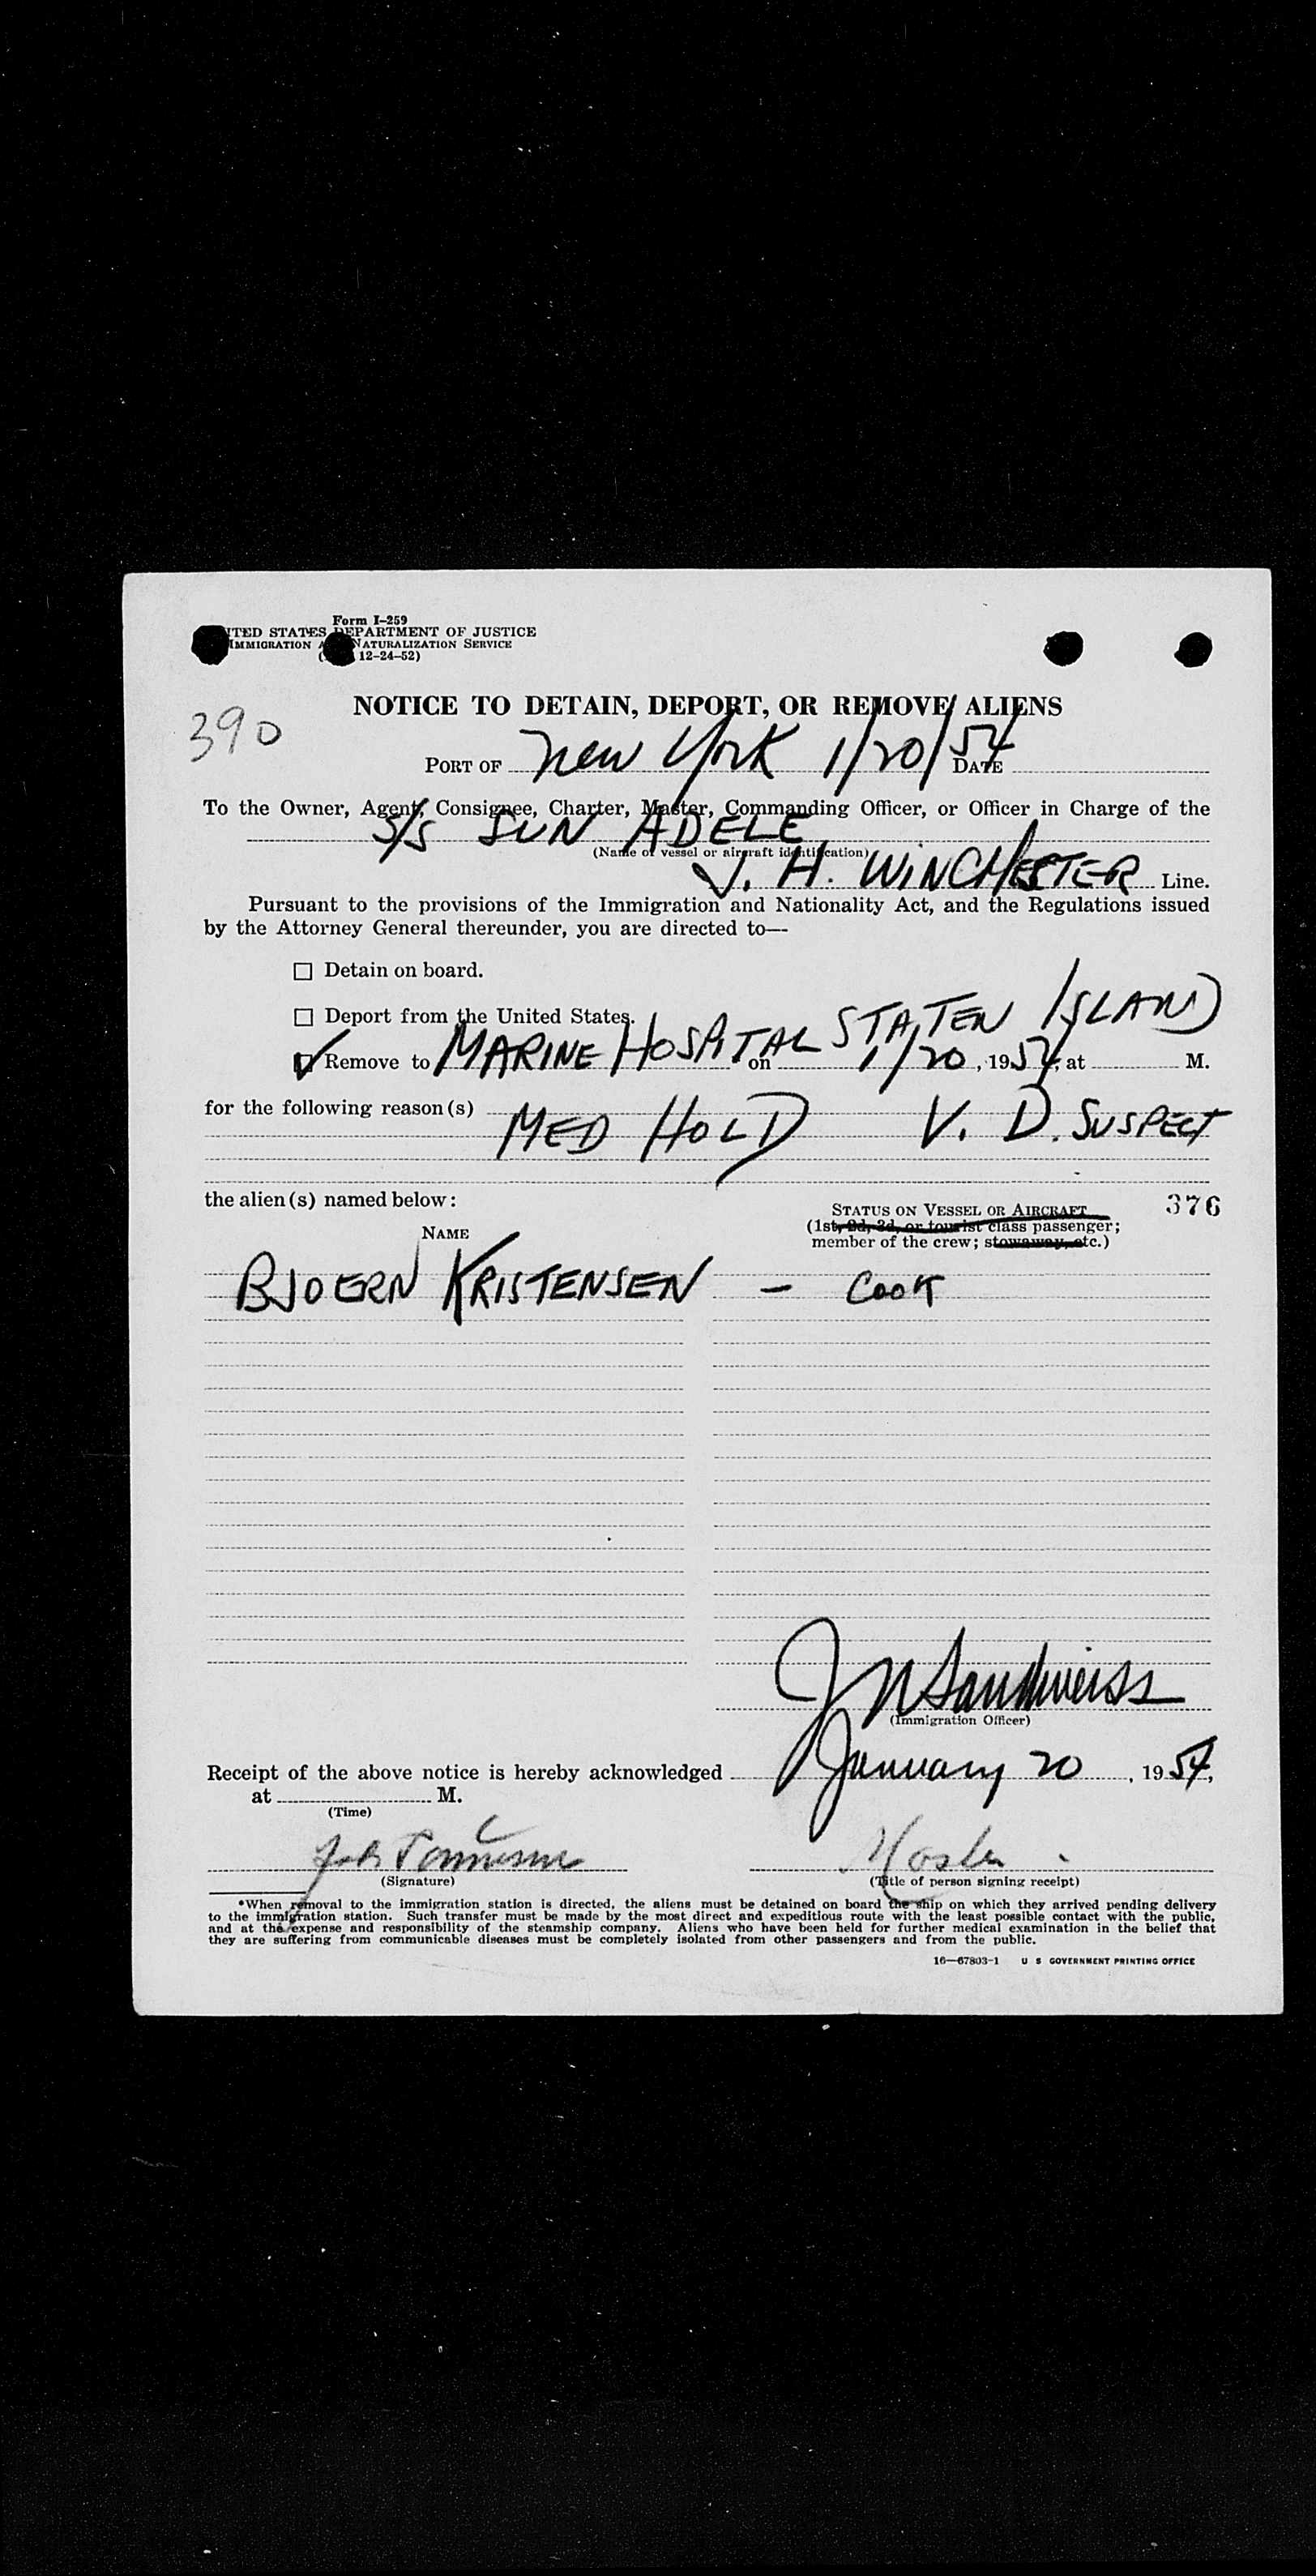 Form I-259
ITED STATES DEPARTMENT OF JUSTICE
IMMIGRATION A NATURALIZATION SERVICE
12-24-52)
390
NOTICE TO DETAIN, DEPORT, OR REMOVE ALIENS
PORT OF New York 1/20/54 DATE
To the Owner, Agent, Consignee, Charter, Master, Commanding Officer, or Officer in Charge of the
S/S SUN ADELE
(Name of vessel or aircraft identification)
J. H. WINCHESTER Line.
Pursuant to the provisions of the Immigration and Nationality Act, and the Regulations issued
by the Attorney General thereunder, you are directed to—
☐ Detain on board.
☐ Deport from the United States.
Remove to MARINE HOSPITAL STATEN ISLAND on 1/20, 1954, at M.
for the following reason(s)
MED HOLD V. D. SUSPECT
the alien(s) named below:
376
NAME
STATUS ON VESSEL OR AIRCRAFT
(1st, 2d, 3d, or tourist class passenger;
member of the crew; stowaway, etc.)
BJOERN KRISTENSEN - COOK
J N Sandweiss
(Immigration Officer)
Receipt of the above notice is hereby acknowledged January 20, 1954,
at M.
(Time)
Master
(Signature) (Title of person signing receipt)
*When removal to the immigration station is directed, the aliens must be detained on board the ship on which they arrived pending delivery
to the immigration station. Such transfer must be made by the most direct and expeditious route with the least possible contact with the public,
and at the expense and responsibility of the steamship company. Aliens who have been held for further medical examination in the belief that
they are suffering from communicable diseases must be completely isolated from other passengers and from the public.
16—67803-1 U S GOVERNMENT PRINTING OFFICE